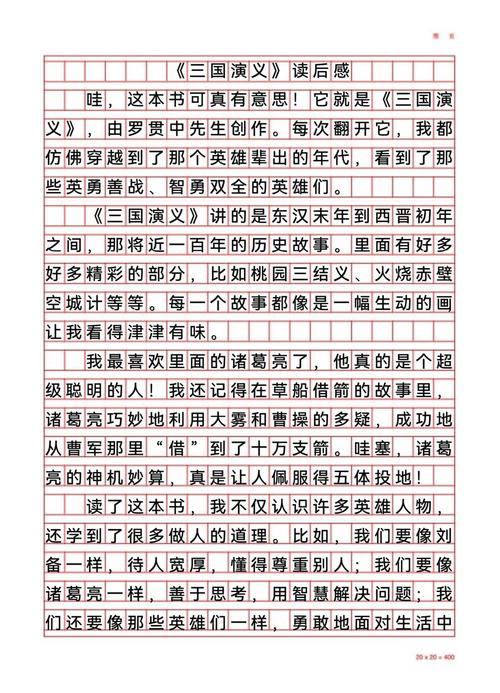 《三国演义》读后感
哇，这本书可真有意思！它就是《三国演
义》，由罗贯中先生创作。每次翻开它，我都
仿佛穿越到了那个英雄辈出的年代，看到了那
些英勇善战、智勇双全的英雄们。
《三国演义》讲的是东汉末年到西晋初年
之间，那将近一百年的历史故事。里面有好多
好多精彩的部分，比如桃园三结义、火烧赤壁
空城计等等。每一个故事都像是一幅生动的画
让我看得津津有味。
我最喜欢里面的诸葛亮了，他真的是个超
级聪明的人！我还记得在草船借箭的故事里，
诸葛亮巧妙地利用大雾和曹操的多疑，成功地
从曹军那里“借”到了十万支箭。哇塞，诸葛
亮的神机妙算，真是让人佩服得五体投地！
读了这本书，我不仅认识许多英雄人物，
还学到了很多做人的道理。比如，我们要像刘
备一样，待人宽厚，懂得尊重别人；我们要像
诸葛亮一样，善于思考，用智慧解决问题；我
们还要像那些英雄们一样，勇敢地面对生活中
20 x 20 = 400